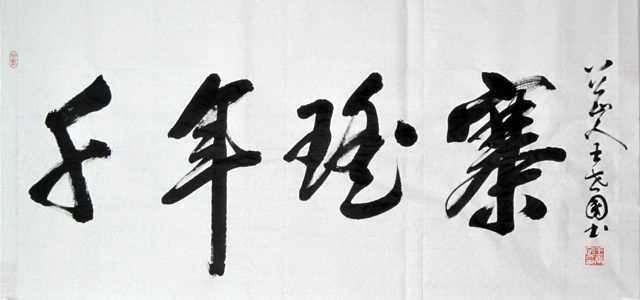 千年瑶寨
八公山人王世國书